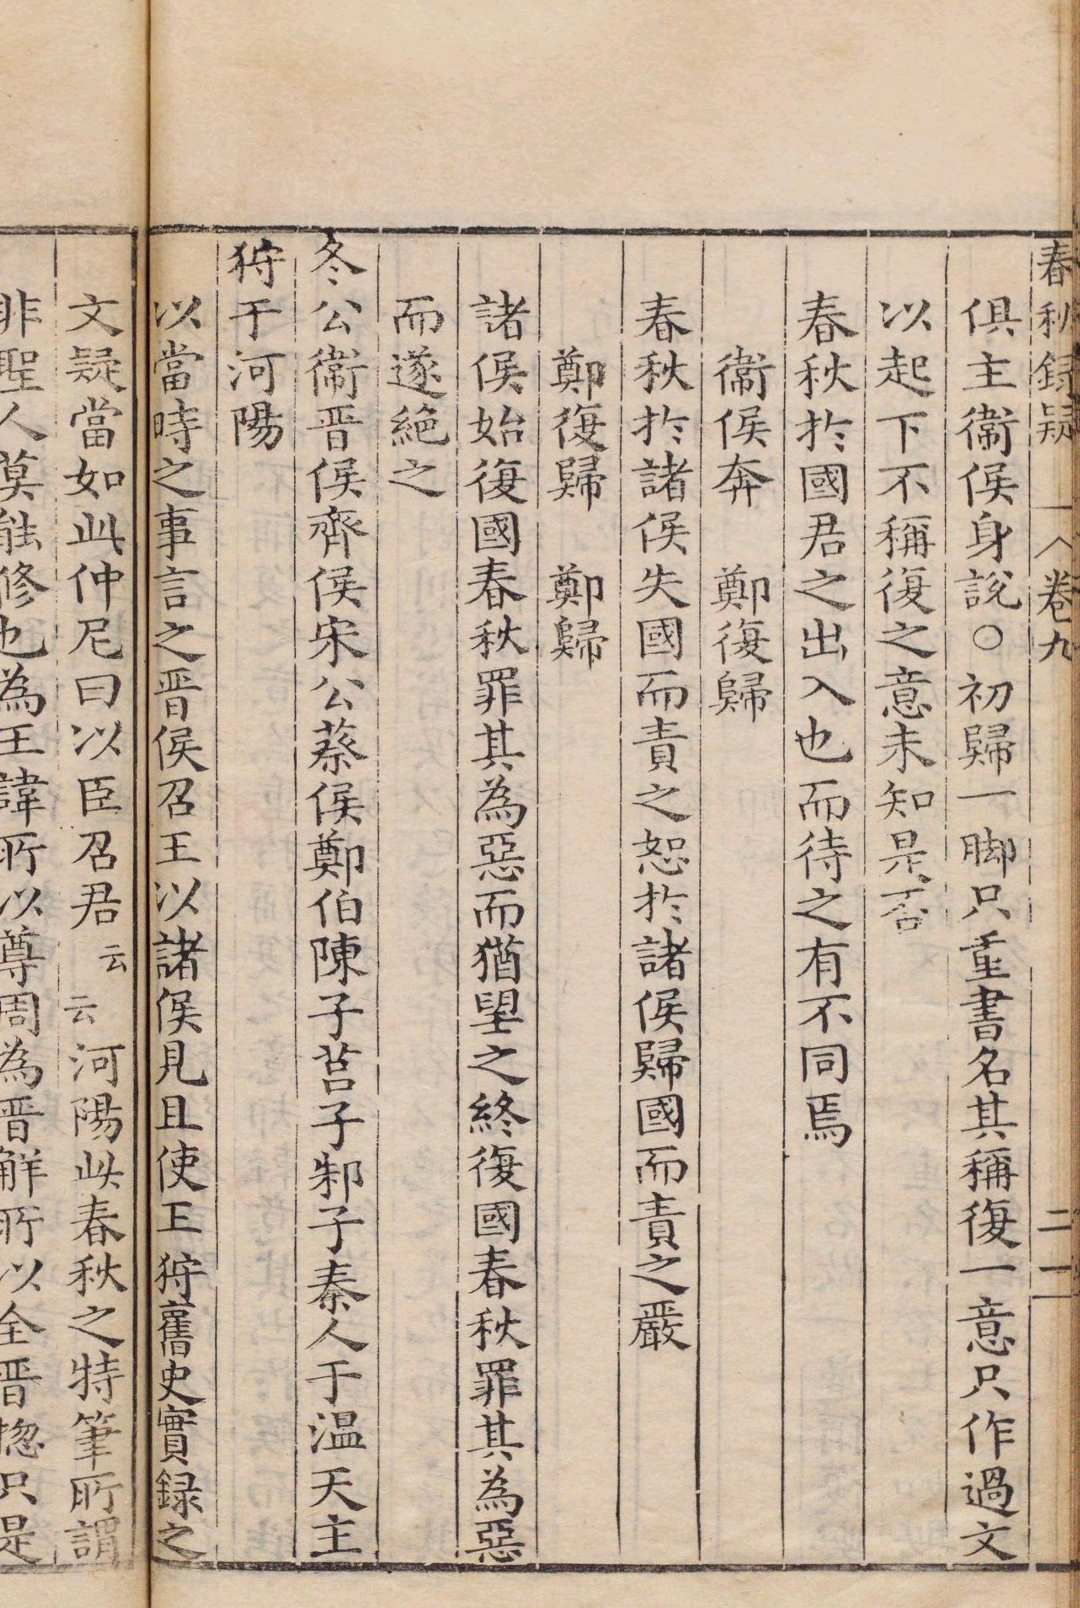 春秋録疑 卷九 二一
俱主衞侯身說○初歸一脚只重書名其稱復一意只作過文
以起下不稱復之意未知是否
春秋扵國君之出入也而待之有不同焉
衞侯奔 鄭復歸
春秋扵諸侯失國而責之恕扵諸侯歸國而責之嚴
鄭復歸 鄭歸
諸侯始復國春秋罪其為惡而猶望之終復國春秋罪其為惡
而遂絕之
冬公衞晋侯齊侯宋公蔡侯鄭伯陳子莒子邾子秦人于温天主
狩于河陽
以當時之事言之晋侯召王以諸侯見且使王狩舊史實録之
文疑當如此仲尼曰以臣召君云云河陽此春秋之特筆所謂
非聖人莫能修也為王諱所以尊周為晋解所以全晋揔只是